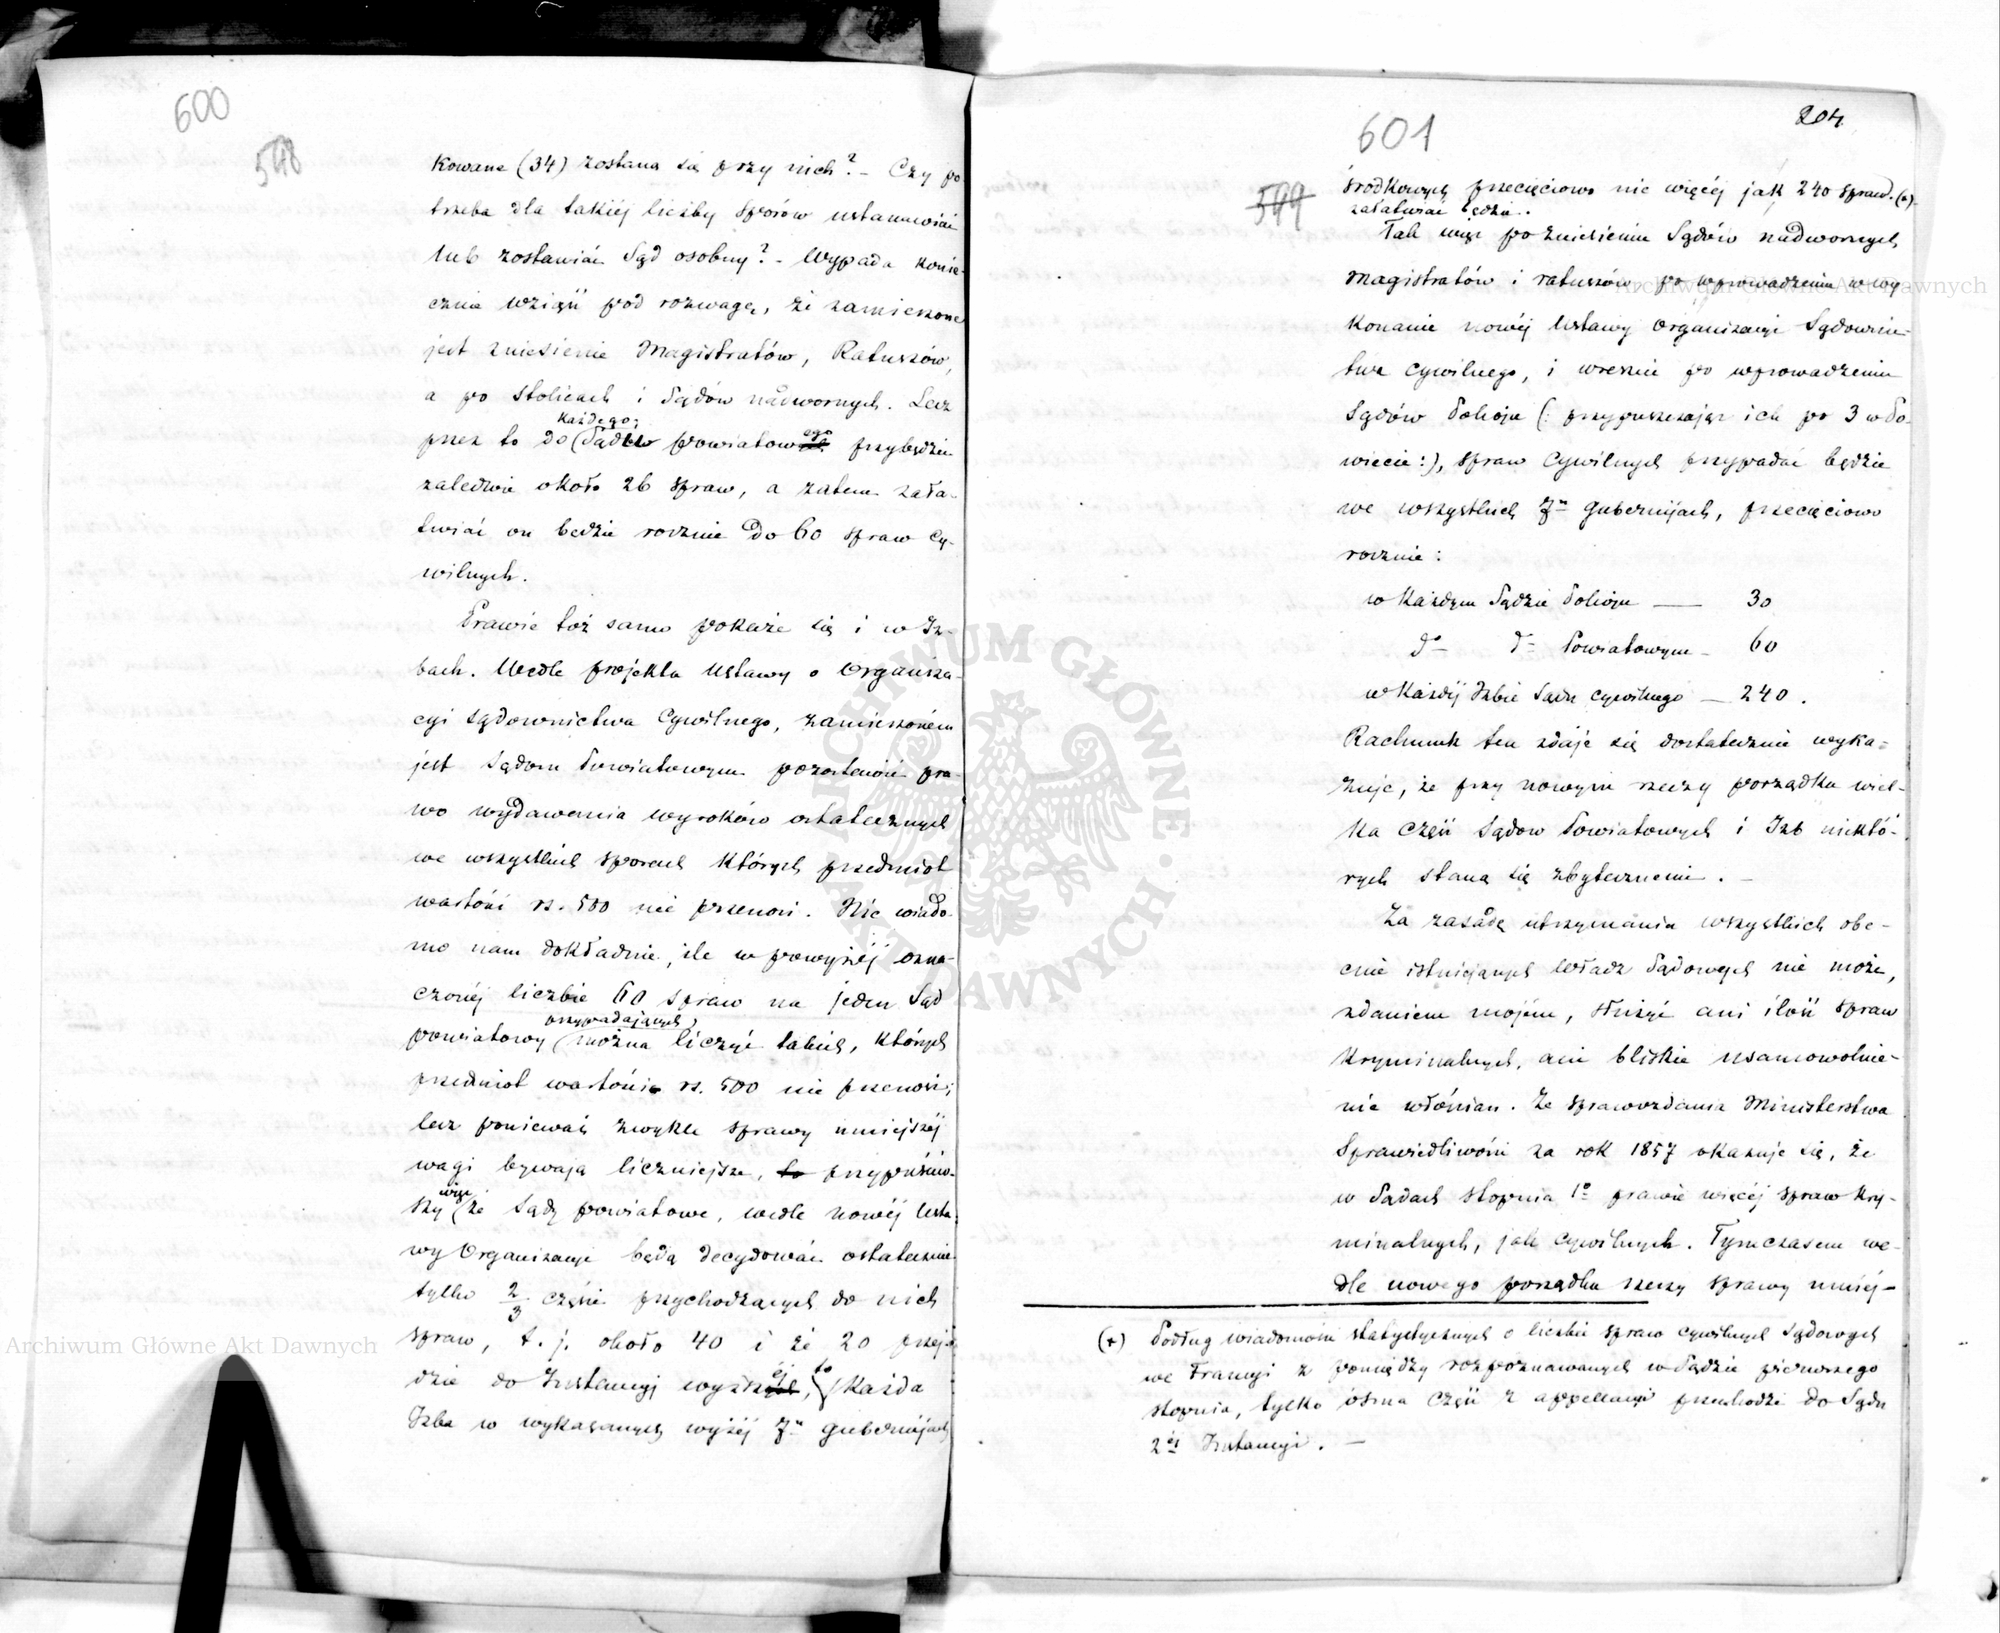 600
548
kowane (34) zostaną się przy nich? – Czy po
trzeba dla takiéj liczby sporów ustanowiać
lub zostawiać Sąd osobny? – Wypada konie-
cznie wziąść pod rozwagę, że zamierzone
jest zniesienie Magistratów, Ratuszów,
a po stolicach i Sądów nadwornych. Lecz
każdego
przez to do Sądu powiatowego przybędzie
zaledwie około 26 spraw, a zatem zała-
twiać on będzie rocznie do 60 spraw cy-
wilnych.
Prawie toż samo pokaże się i w Iz-
bach. Wedle projektu Ustawy o Organiza-
cyi sądownictwa Cywilnego, zamierzoném
jest Sądom Powiatowym pozostawić pra-
wo wydawania wyroków ostatecznych
we wszystkich sporach których przedmiot
wartości rs. 500 nie przenosi. Nie wiado-
mo nam dokładnie, ile w powyżéj ozna-
czonéj liczbie 60 spraw na jeden Sąd
przypadających
powiatowy można liczyć takich, których
przedmiot wartości rs. 500 nie przenosi;
lecz ponieważ zwykle sprawy mniejszéj
wagi bywają liczniejsze, to przypuśćmy
więc
że Sądy powiatowe, wedle nowéj Usta-
wy Organizacyi będą decydować ostatecznie
tylko 2/3 części przychodzących do nich
spraw, t. j. około 40 i że 20 przej-
dzie do Instancyj wyższéj, to każda
Izba w wykazanych wyżéj 7u gubernijach
601
204
599
środkowych przecięciowo nie więcéj jak 240 spraw. (*)
załatwiać będzie.
Tak więc po zniesieniu Sądów nadwornych
Magistratów i ratuszów, po wprowadzeniu w wy
konanie nowéj Ustawy organizacyi Sądownic-
twa cywilnego, i wreszcie po wprowadzeniu
Sądów Pokoju (: przypuszczając ich po 3 w Po-
wiecie :), spraw Cywilnych przypadać będzie
we wszystkich 7u gubernijach, przecięciowo
rocznie:
w każdym Sądzie Pokoju — 30
do do Powiatowym – 60
w każdéj Izbie Sądu cywilnego — 240.
Rachunek ten zdaje się dostatecznie wyka-
zuje, że przy nowym rzeczy porządku wiel-
ka część Sądów Powiatowych i Izb niektó-
rych staną się zbytecznemi. –
Za zasadę utrzymania wszystkich obe-
cnie istniejących Władz Sądowych nie może,
zdaniem mojém, służyć ani ilość spraw
kryminalnych, ani bliskie usamowolnie-
nie włościan. Ze sprawozdania Ministerstwa
Sprawiedliwości za rok 1857 okazuje się, że
w Sądach stopnia 1o prawie więcéj spraw kry-
minalnych, jak cywilnych. Tymczasem we-
dle nowego porządku rzeczy sprawy mniéj-
(*) Podług wiadomości statystycznych o liczbie spraw cywilnych Sądowych
we Francyi z pomiędzy rozpoznawanych w Sądzie pierwszego
stopnia, tylko ósma część z appellacyi przechodzi do Sądu
2éj Instancyi. —
ARCHIWUM GŁÓWNE AKT DAWNYCH
Archiwum Główne Akt Dawnych
Archiwum Główne Akt Dawnych